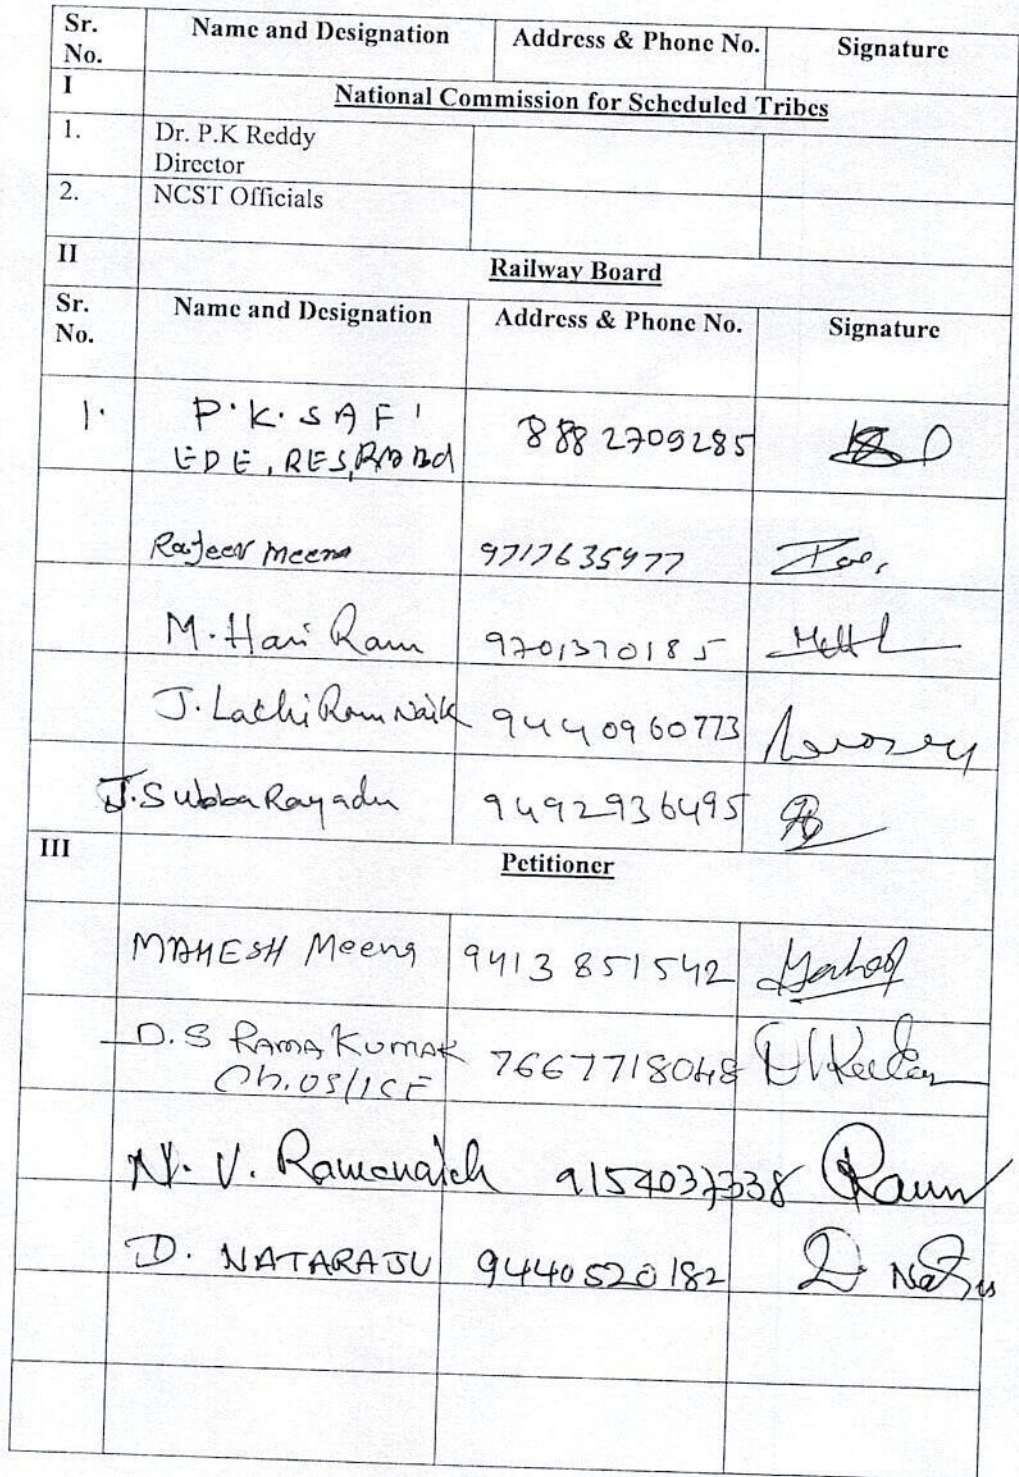 Sr. No. Name and Designation Address & Phone No. Signature
I National Commission for Scheduled Tribes
1. Dr. P.K Reddy
Director
2. NCST Officials
II Railway Board
Sr. No. Name and Designation Address & Phone No. Signature
1. P.K. SAFI 8882709285
EDE, RES,
Rajeev Meena 9717635977
M. Hari Ram 9701370185
J. Lachi Ram Naik 9440960773
J. Subba Rayadu 9492936495
III Petitioner
MAHESH Meena 9413851542
D.S RAMA KUMAR 7667718048
Ch.OS/ICF
N. V. Ramanaiah
D. NATARAJU 9440520182